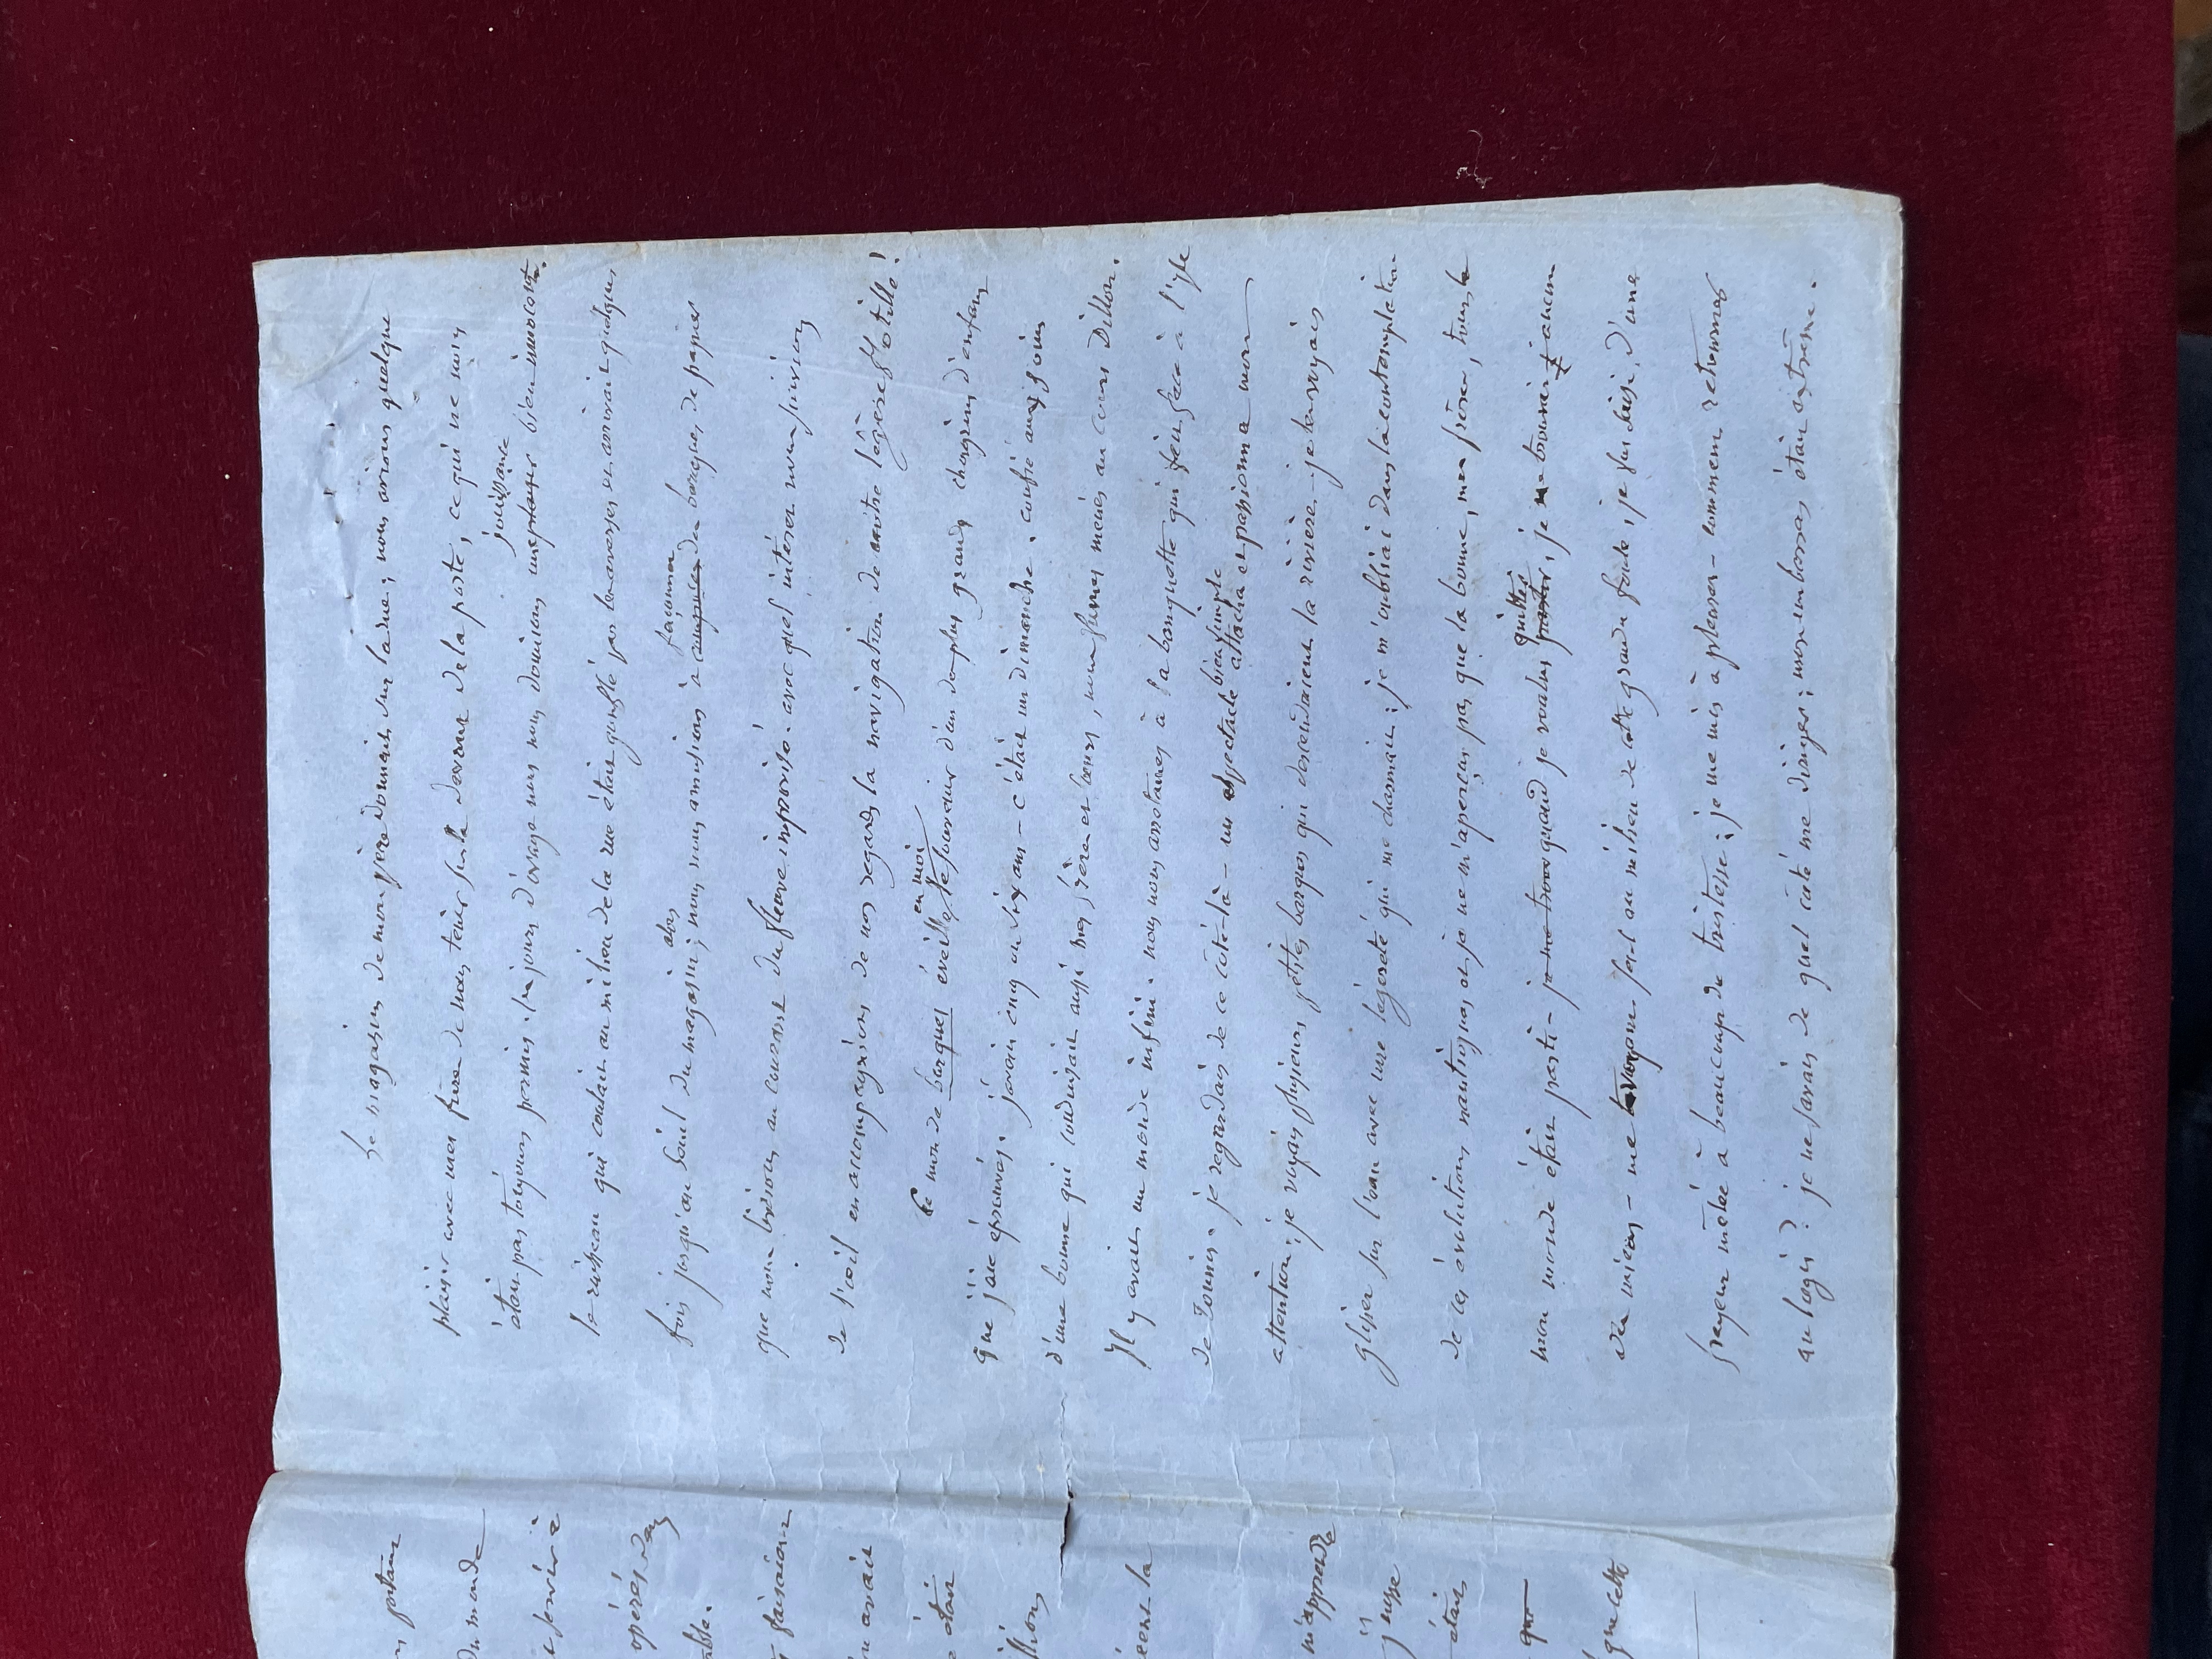 Le magasin de mon père donnait sur la rue; nous avions quelque
plaisir avec mes frères de nous tenir sur le devant de la porte, ce qui ne nous
était pas toujours permis. les jours d'orage nous nous donnions une plaisir jouissance bien innocente.
le ruisseau qui coulait au milieu de la rue était gonflé par les averses et arrivait quelques
fois jusqu'au seuil du magasin; nous nous amusions alors à composer façonner des barques de papier
que nous livrions au courant du fleuve improvisé. avec quel intérêt nous suivions
de l'œil en accompagnions de nos regards la navigation de notre légère flotille!
Ce mot de barques éveille en moi le souvenir d'un des plus grands chagrins d'enfant
que j'aie éprouvés. j'avais cinq ou six ans - c'était un dimanche. confié aux soins
d'une bonne qui conduisait aussi mes frères et sœurs, nous fumes menés au cours Dillon.
Il y avait un monde infini. nous nous arrêtames à la banquette qui fait face à l'isle
de Tounis. je regardais de ce côté-là - un spectacle bien simple attacha et passionna mon
attention; je voyais plusieurs petites barques qui descendaient la rivière - je les voyais
glisser sur l'eau avec une légèreté qui me charmait; je m'oubliai dans la contemplation
de ces évolutions nautiques et je ne m'aperçus pas que la bonne, mes frères, tout le
mon monde était parti - je me trouv quand je voulus partir quitter, je ne trouvai aucun
des miens - me voyant seul au milieu de cette grande foule, je fus saisi d'une
frayeur mêlée à beaucoup de tristesse; je me mis à pleurer - comment retourner
au logis? je ne savais de quel côté me diriger; mon embarras était extrême.
portant
du monde
servir à
opérés dans
faisaient
avait
était
m'apprendre
j'eusse
étais
que
que cette